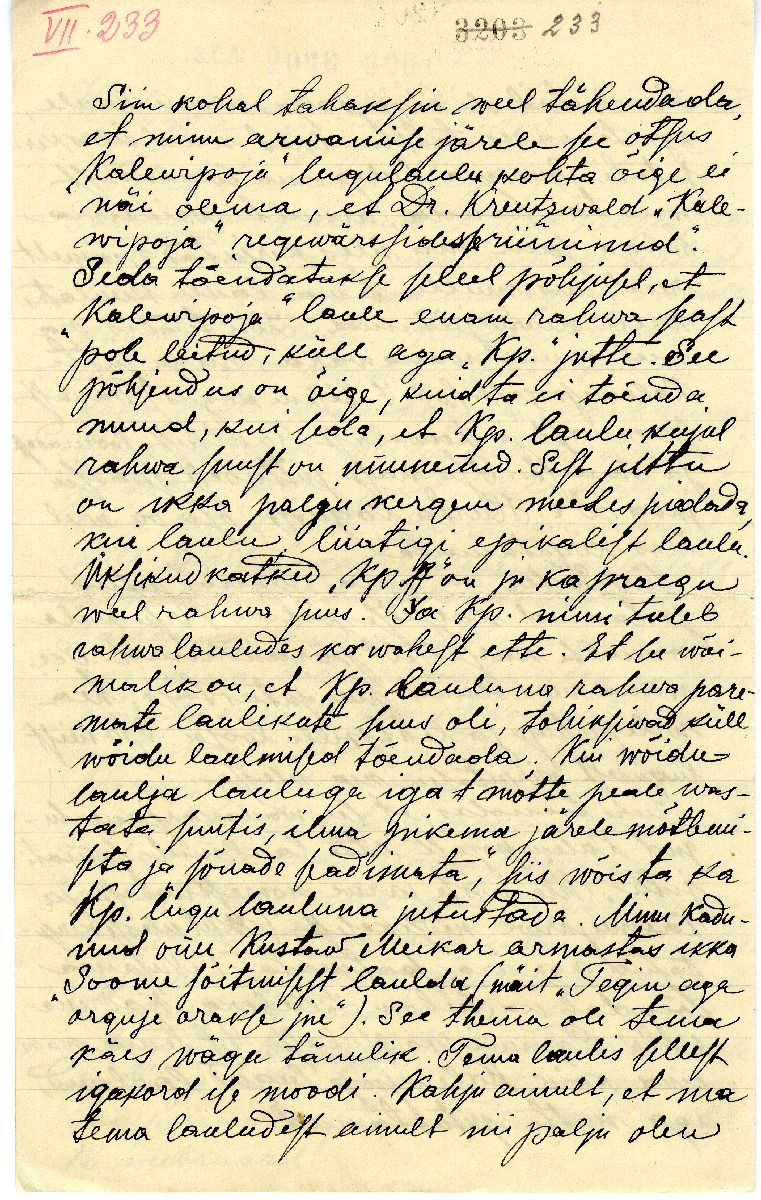 VII. 233
3203 233
Siin kohal tahaksin weel tähendada,
et minu arwamise järele see otsus
"Kalewipoja" lugulaulu kohta õige ei
näi olema, et Dr. Kreutzwald "Kale-
wipoja" regewärssidesse
Seda tõendatakse sellel põhjusel, et
"Kalewipoja" laule enam rahwa seast
pole leitud, küll aga "Kp." jutte. See
põhjendus on õige, kuid ta ei tõenda
muud, kui seda, et Kp. laulu kujul
rahwa suust on ununenud. Sest juttu
on ikka palju kergem meeles pidada,
kui laulu, liiatigi epikalist laulu.
Üksikud katked "Kp." on ju ka praegu
weel rahwa suus. Ja Kp. nimi tuleb
rahwalauludes ka wahest ette. Et see wõi-
malik on, et Kp. lauluna rahwa pare-
mate laulikute suus oli, tohiksiwad küll
wõidu laulmised tõendada. Kui wõidu-
laulja lauluga igat mõtte peale was-
tata suutis, ilma pikema järelemõtlemi-
seta ja sõnade seadimata, siis wõis ta ka
Kp. lugu lauluna jutustada. Minu kadu-
nud onu Kustaw Meikar armastas ikka
"Soome sõitmisest" laulda (näit. "Tegin aga
orguje orakse jne"). See thema oli tema
käes wäga tänulik. Tema laulis sellest
igakord ise moodi. Kahju ainult, et ma
tema lauludest ainult nii palju olen